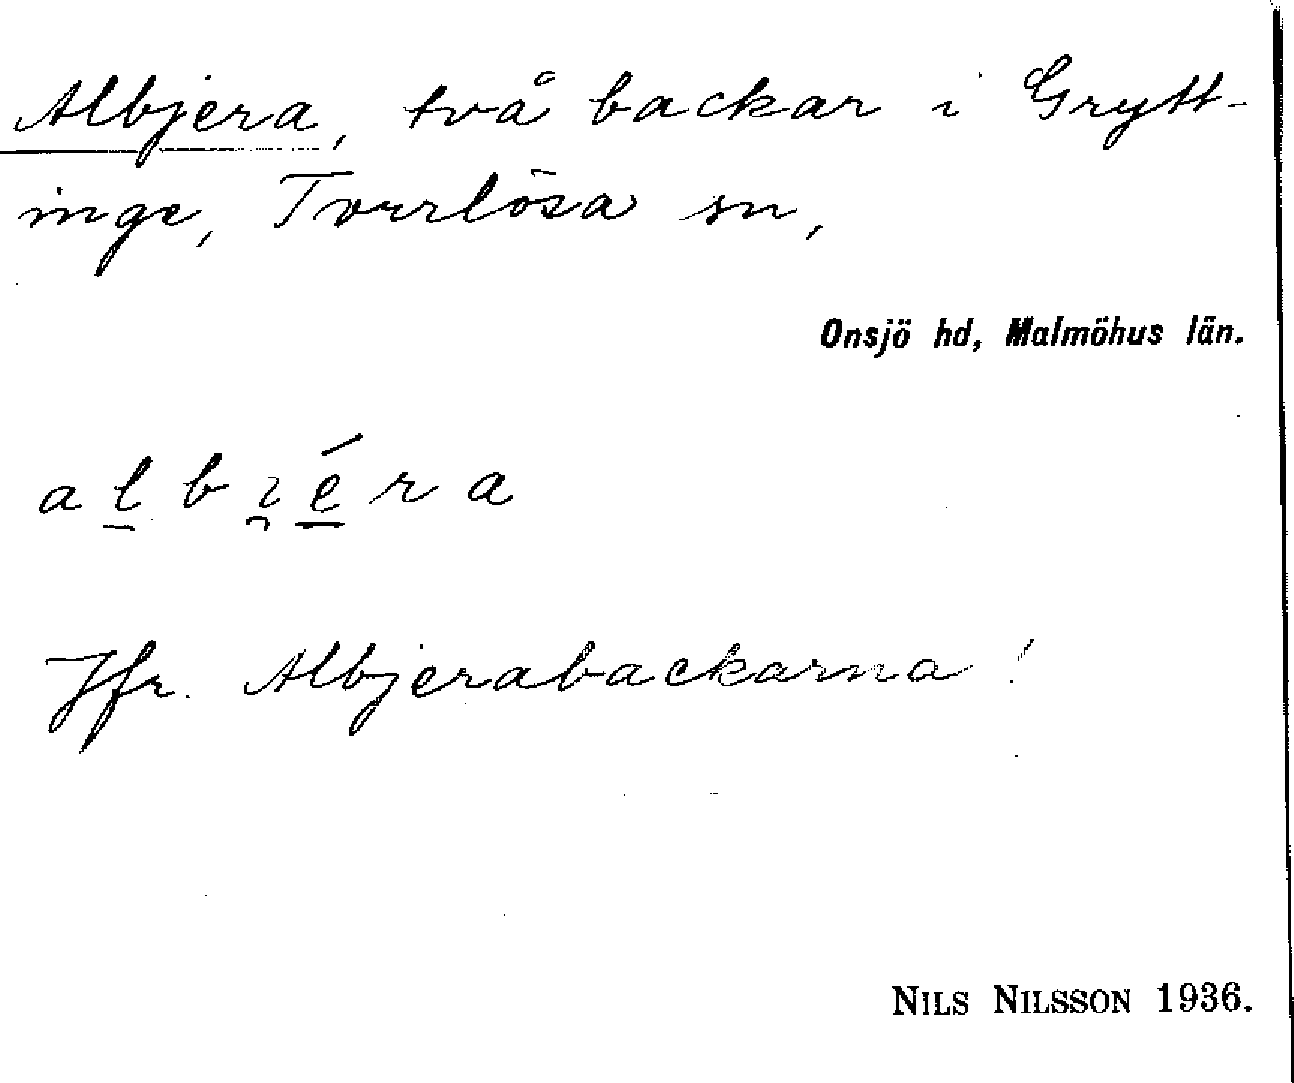 Albjera, två backar i Grytt-
inge, Torrlösa sn,
Onsjö hd, Malmöhus län.
a l̲ b i̯ é̲ r a
Jfr. Albjerabackarna!
NILS NILSSON 1936.